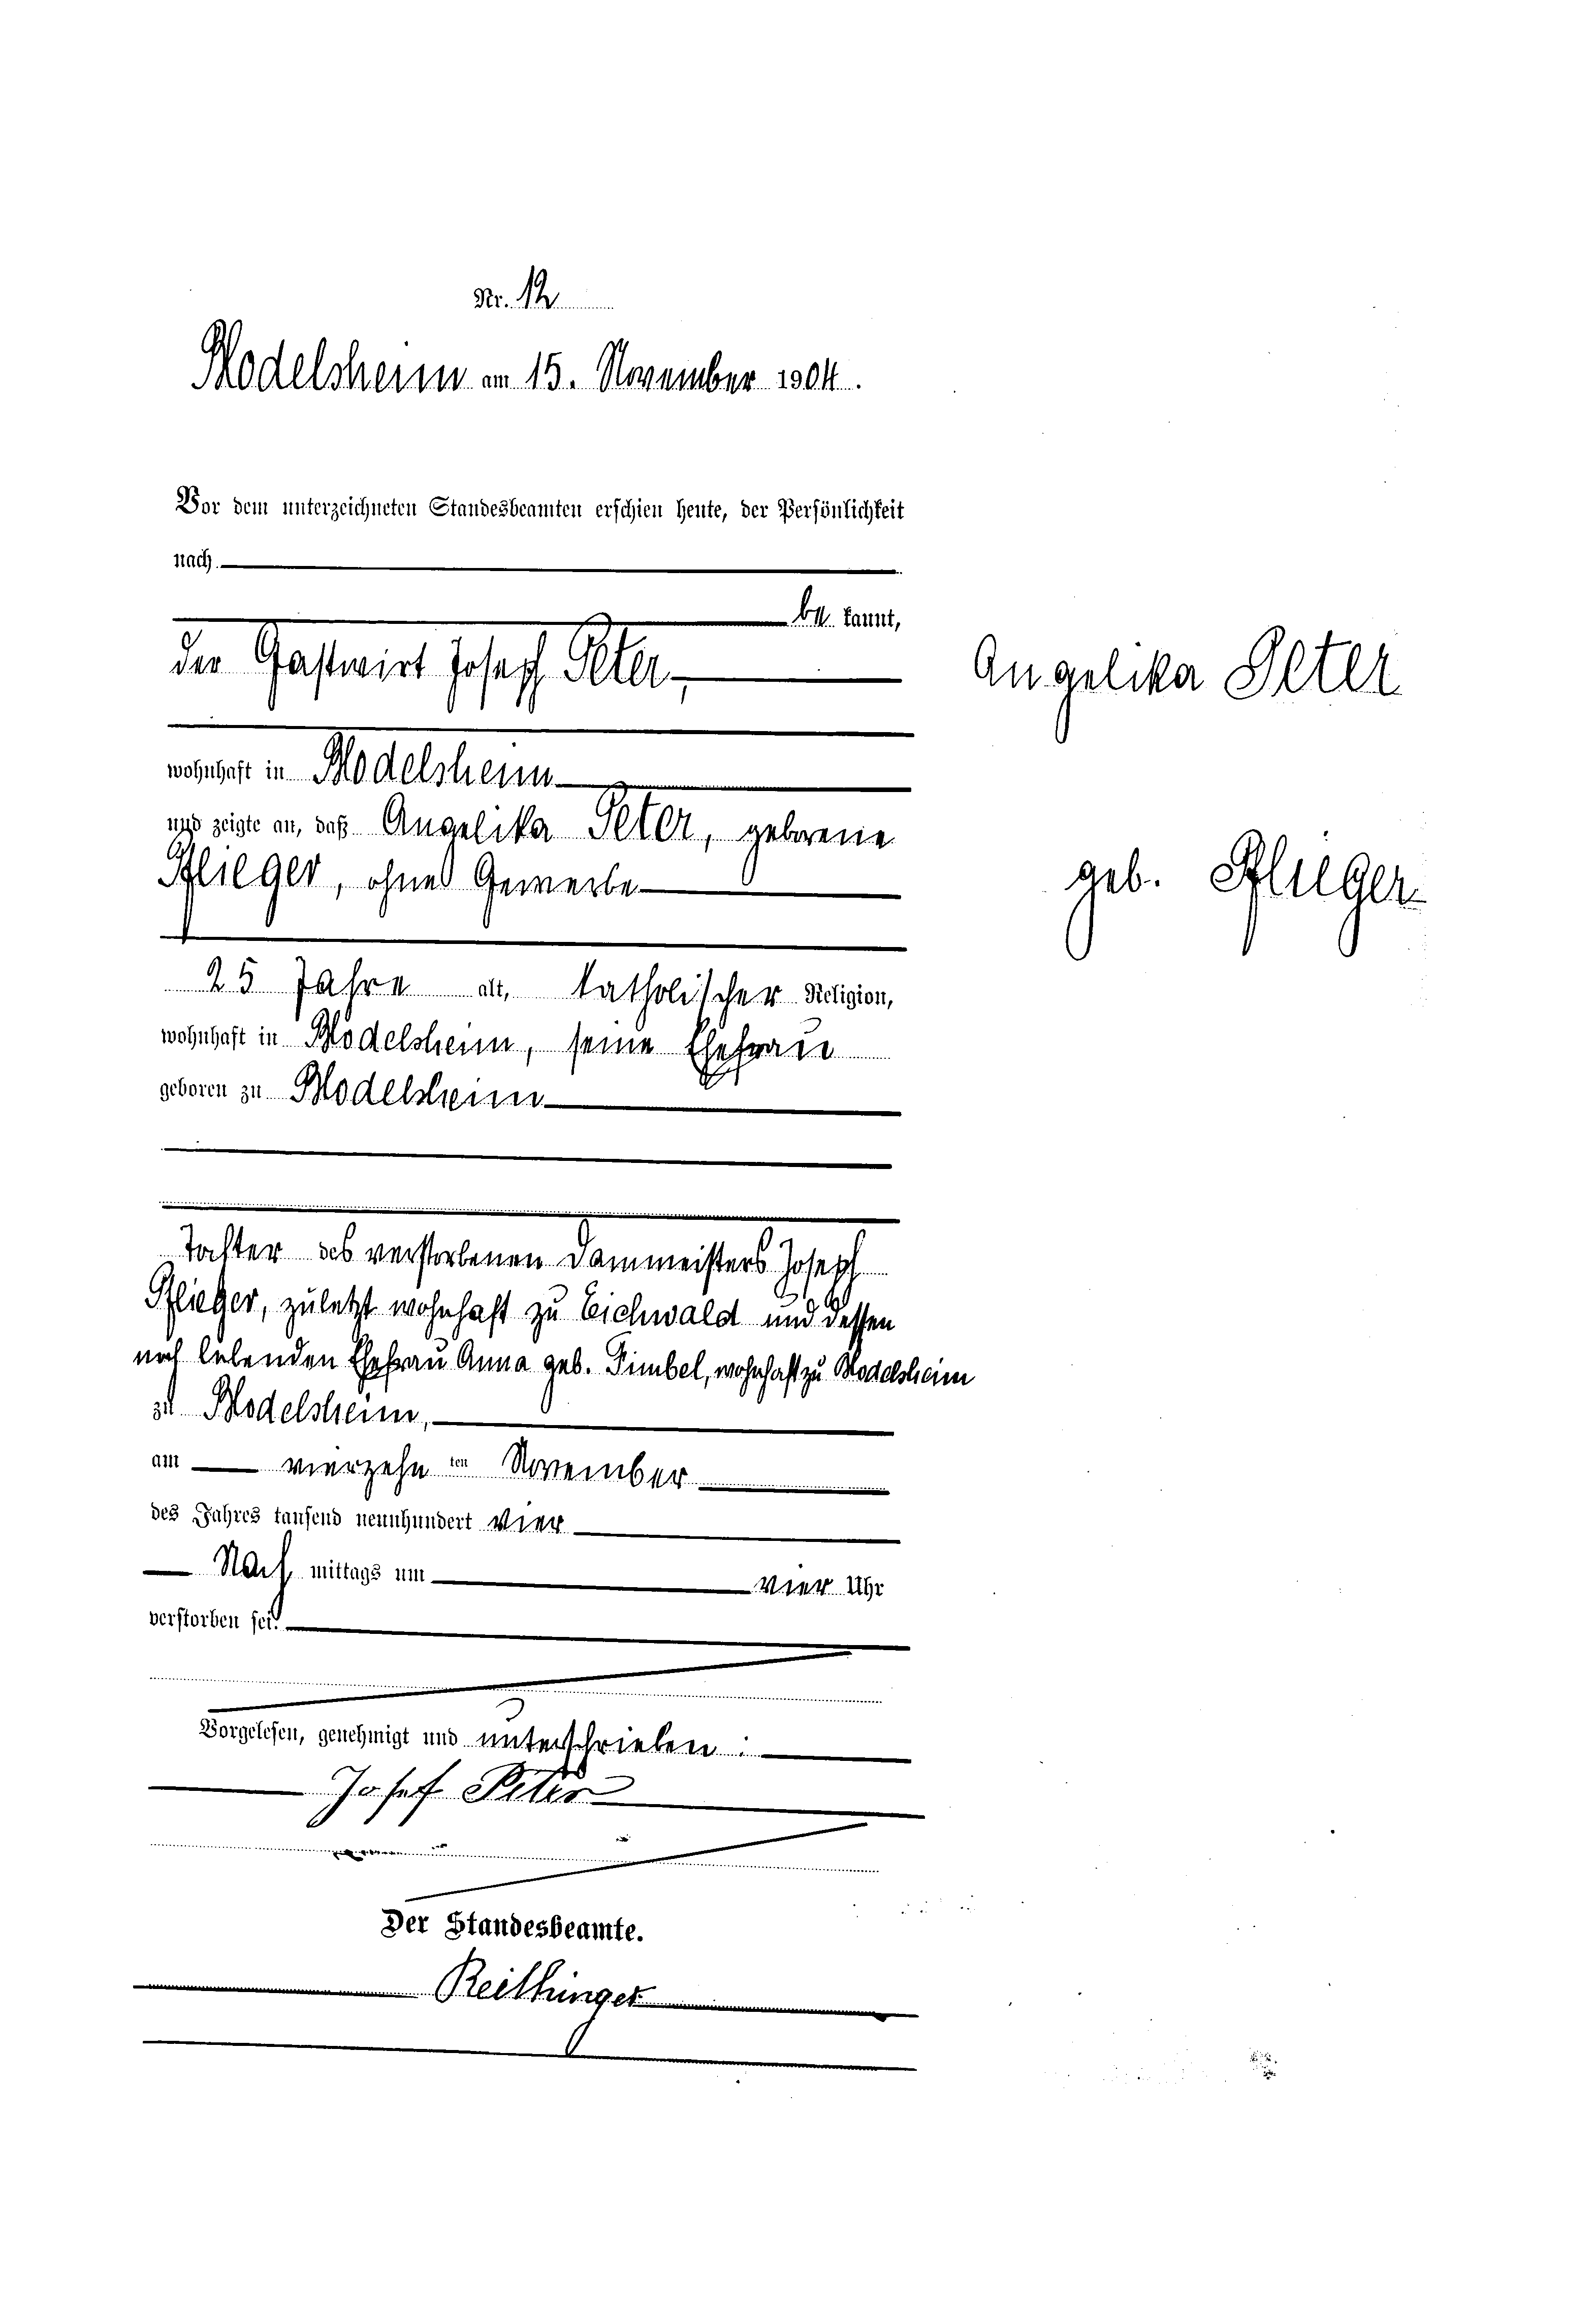 Nr. 12
Blodelsheim am 15. November 1904.
Vor dem unterzeichneten Standesbeamten erschien heute, der Persönlichkeit
nach
be kannt,
der Gastwirt Joseph Peter,
wohnhaft in Blodelsheim
und zeigte an, daß Angelika Peter, geborene
Pflieger, ohne Gewerbe
25 Jahre alt, katholischer Religion,
wohnhaft in Blodelsheim, seine Ehefrau
geboren zu Blodelsheim
Tochter des verstorbenen Dammeisters Joseph
Pflieger, zuletzt wohnhaft zu Eichwald und dessen
noch lebenden Ehefrau Anna geb. Fimbel, wohnhaft zu Blodelsheim
zu Blodelsheim,
am vierzehn ten November
des Jahres tausend neunhundert vier
Nach mittags um vier Uhr
verstorben sei.
Vorgelesen, genehmigt und unterschrieben :
Josef Peter
Der Standesbeamte.
Reithinger
Angelika Peter
geb. Pflieger